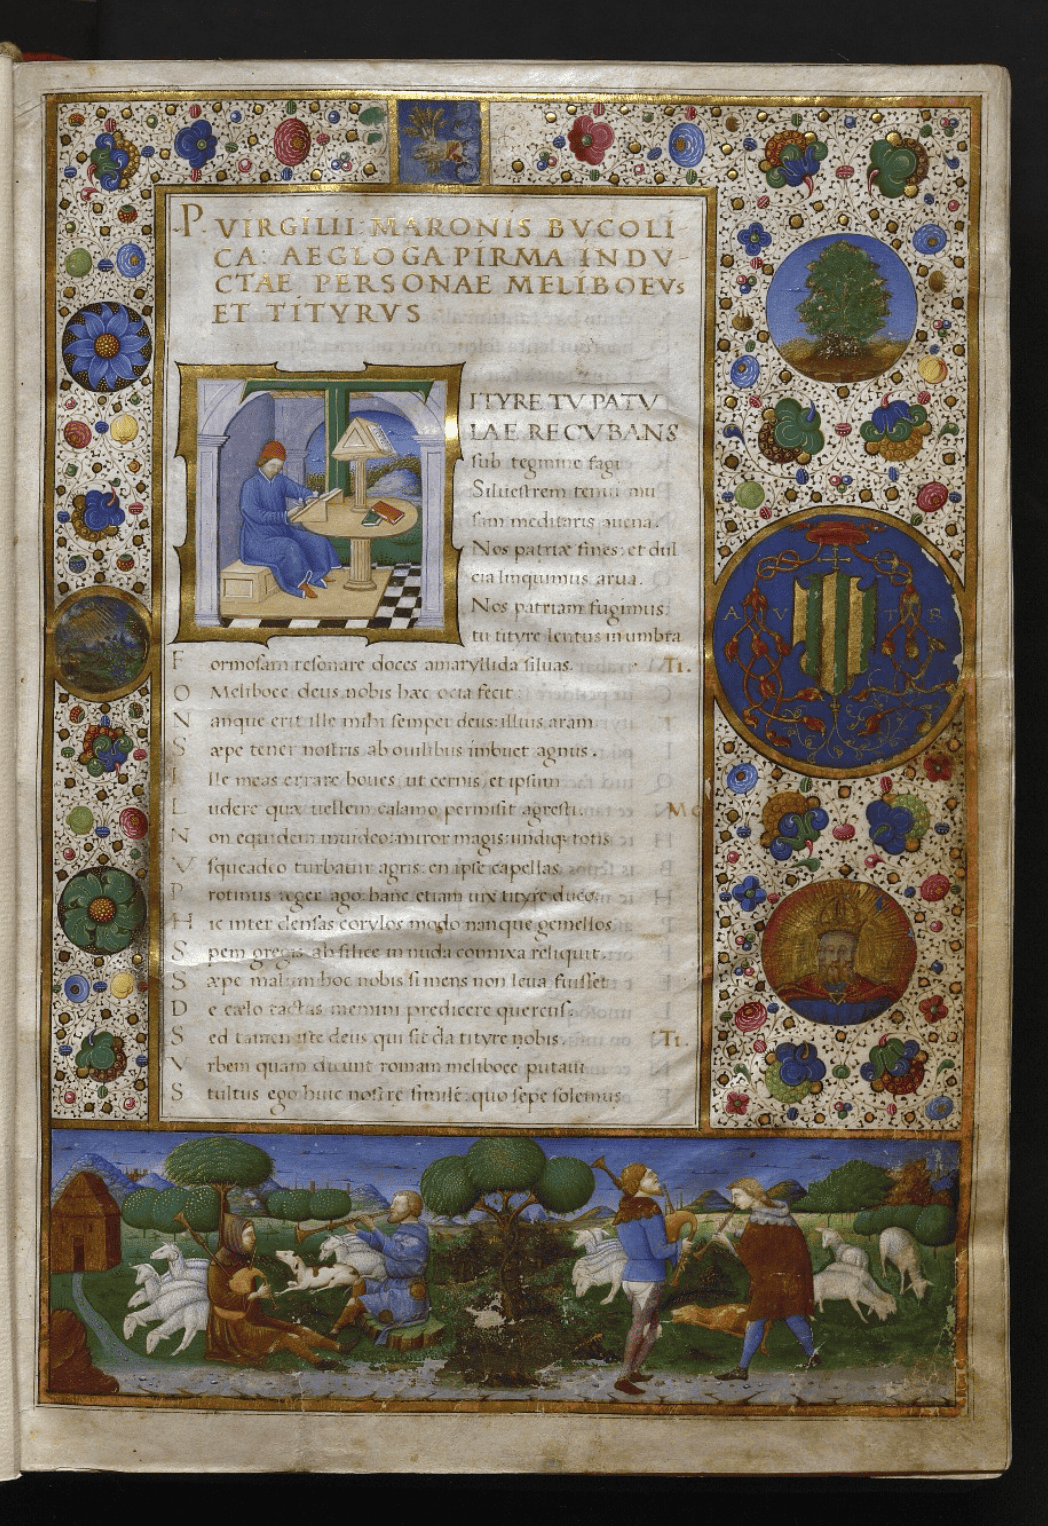 P. VIRGILII MARONIS BVCOLI
CA: AEGLOGA PIRMA INDV
CTAE PERSONAE MELIBOEVS
ET TITYRVS
ITYRE TV PATV
LAE RECVBANS
sub tegmine fagi
Siluestrem tenui mu
sam meditaris auena.
Nos patriæ fines: et dul
cia linquimus arua.
Nos patriam fugimus:
tu tityre lentus in umbra
F ormosam resonare doces amaryllida siluas. Ti.
O Meliboee deus nobis hæc ocia fecit
N anque erit ille mihi semper deus: illius aram
S æpe tener nostris ab ouilibus imbuet agnus.
I lle meas errare boues, ut cernis, et ipsum
L udere quæ uellem calamo permisit agresti. Me
N on equidem inuideo: miror magis: undiq; totis
V squeadeo turbatur agris: en ipse capellas
P rotinus æger ago: hanc etiam uix tityre duco.
H ic inter densas corylos modo nanque gemellos
S pem gregis ah silice in nuda connixa reliquit.
S æpe malum hoc nobis si mens non leua fuisset
D e cælo tactas memini predicere quercus.
S ed tamen iste deus qui sit da tityre nobis. Ti.
V rbem quam dicunt romam meliboee putaui
S tultus ego huic nostre similé: quo sepe solemus
A V T R